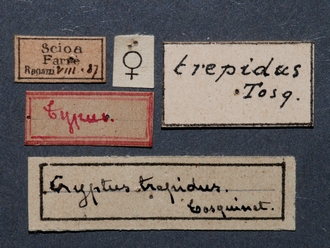 Scioa
Farré
Ragazzi VIII. 87
♀
trepidus
Tosq.
Typus.
Cryptus trepidus.
Tosquinet.